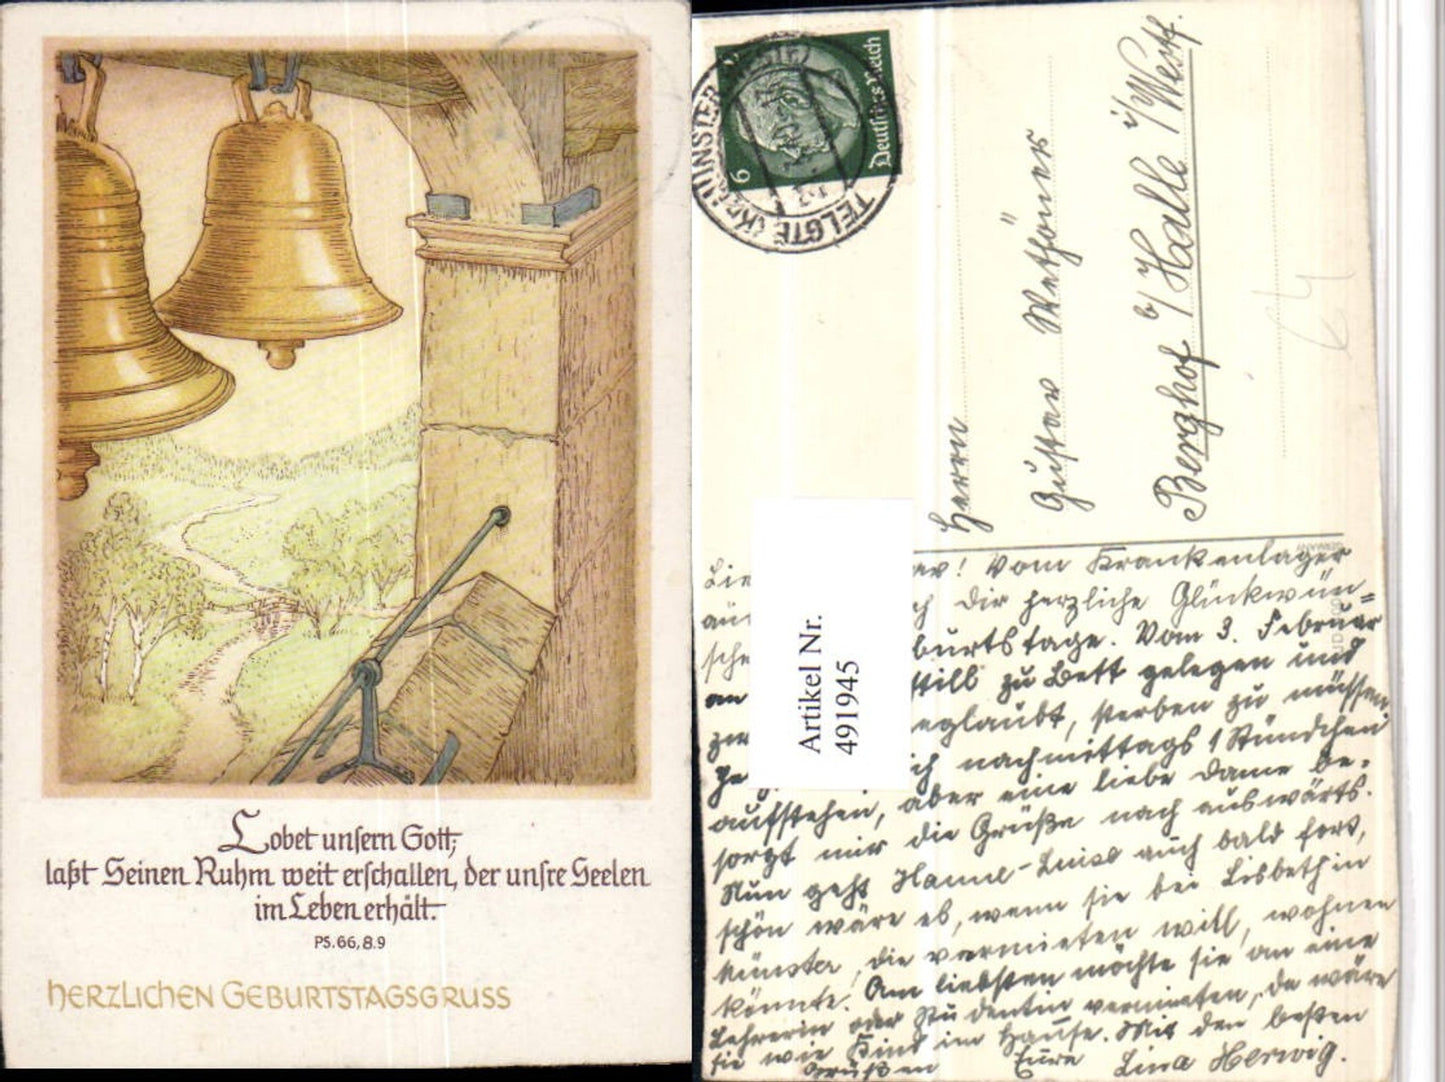 Lobet unsern Gott,
laßt Seinen Ruhm weit erschallen, der unsre Seelen
im Leben erhält.
PS. 66, 8.9
HERZLICHEN GEBURTSTAGSGRUSS
Deutsches Reich
6
TELGTE
Herrn
Gustav Wethöner
Berghof b/ Halle i/Westf.
Artikel Nr.
491945
Vom Krankenlager
Dir herzliche Glückwün=
burtstage. Vom 3. Februar
still zu Bett gelegen und
geglaubt, sterben zu müssen
ich nachmittags 1 Stündchen
aufstehen, aber eine liebe Dame be-
sorgt mir die Grüße nach auswärts.
Nun geht Hanne-Luise auch bald fort,
schön wäre es, wenn sie bei Lisbeth in
Münster, die vermieten will, wohnen
könnte. Am liebsten möchte sie an eine
Lehrerin oder Studentin vermieten, da wäre
sie wie Kind im Hause. Mit den besten
Grüßen Eure Lina Herwig.